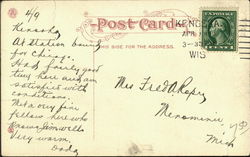 4/9
Post Card
THIS SIDE FOR THE ADDRESS.
KENOSHA
APR
3-30
WIS.
Kenosha
At station going
for Chicago.
Had fairly good
time here and am
satisfied with
conditions.
Met a very fine
fellow here who
knows Jim Wells
Very warm
Dody
Mrs Fred A Roper
Menominee
Mich